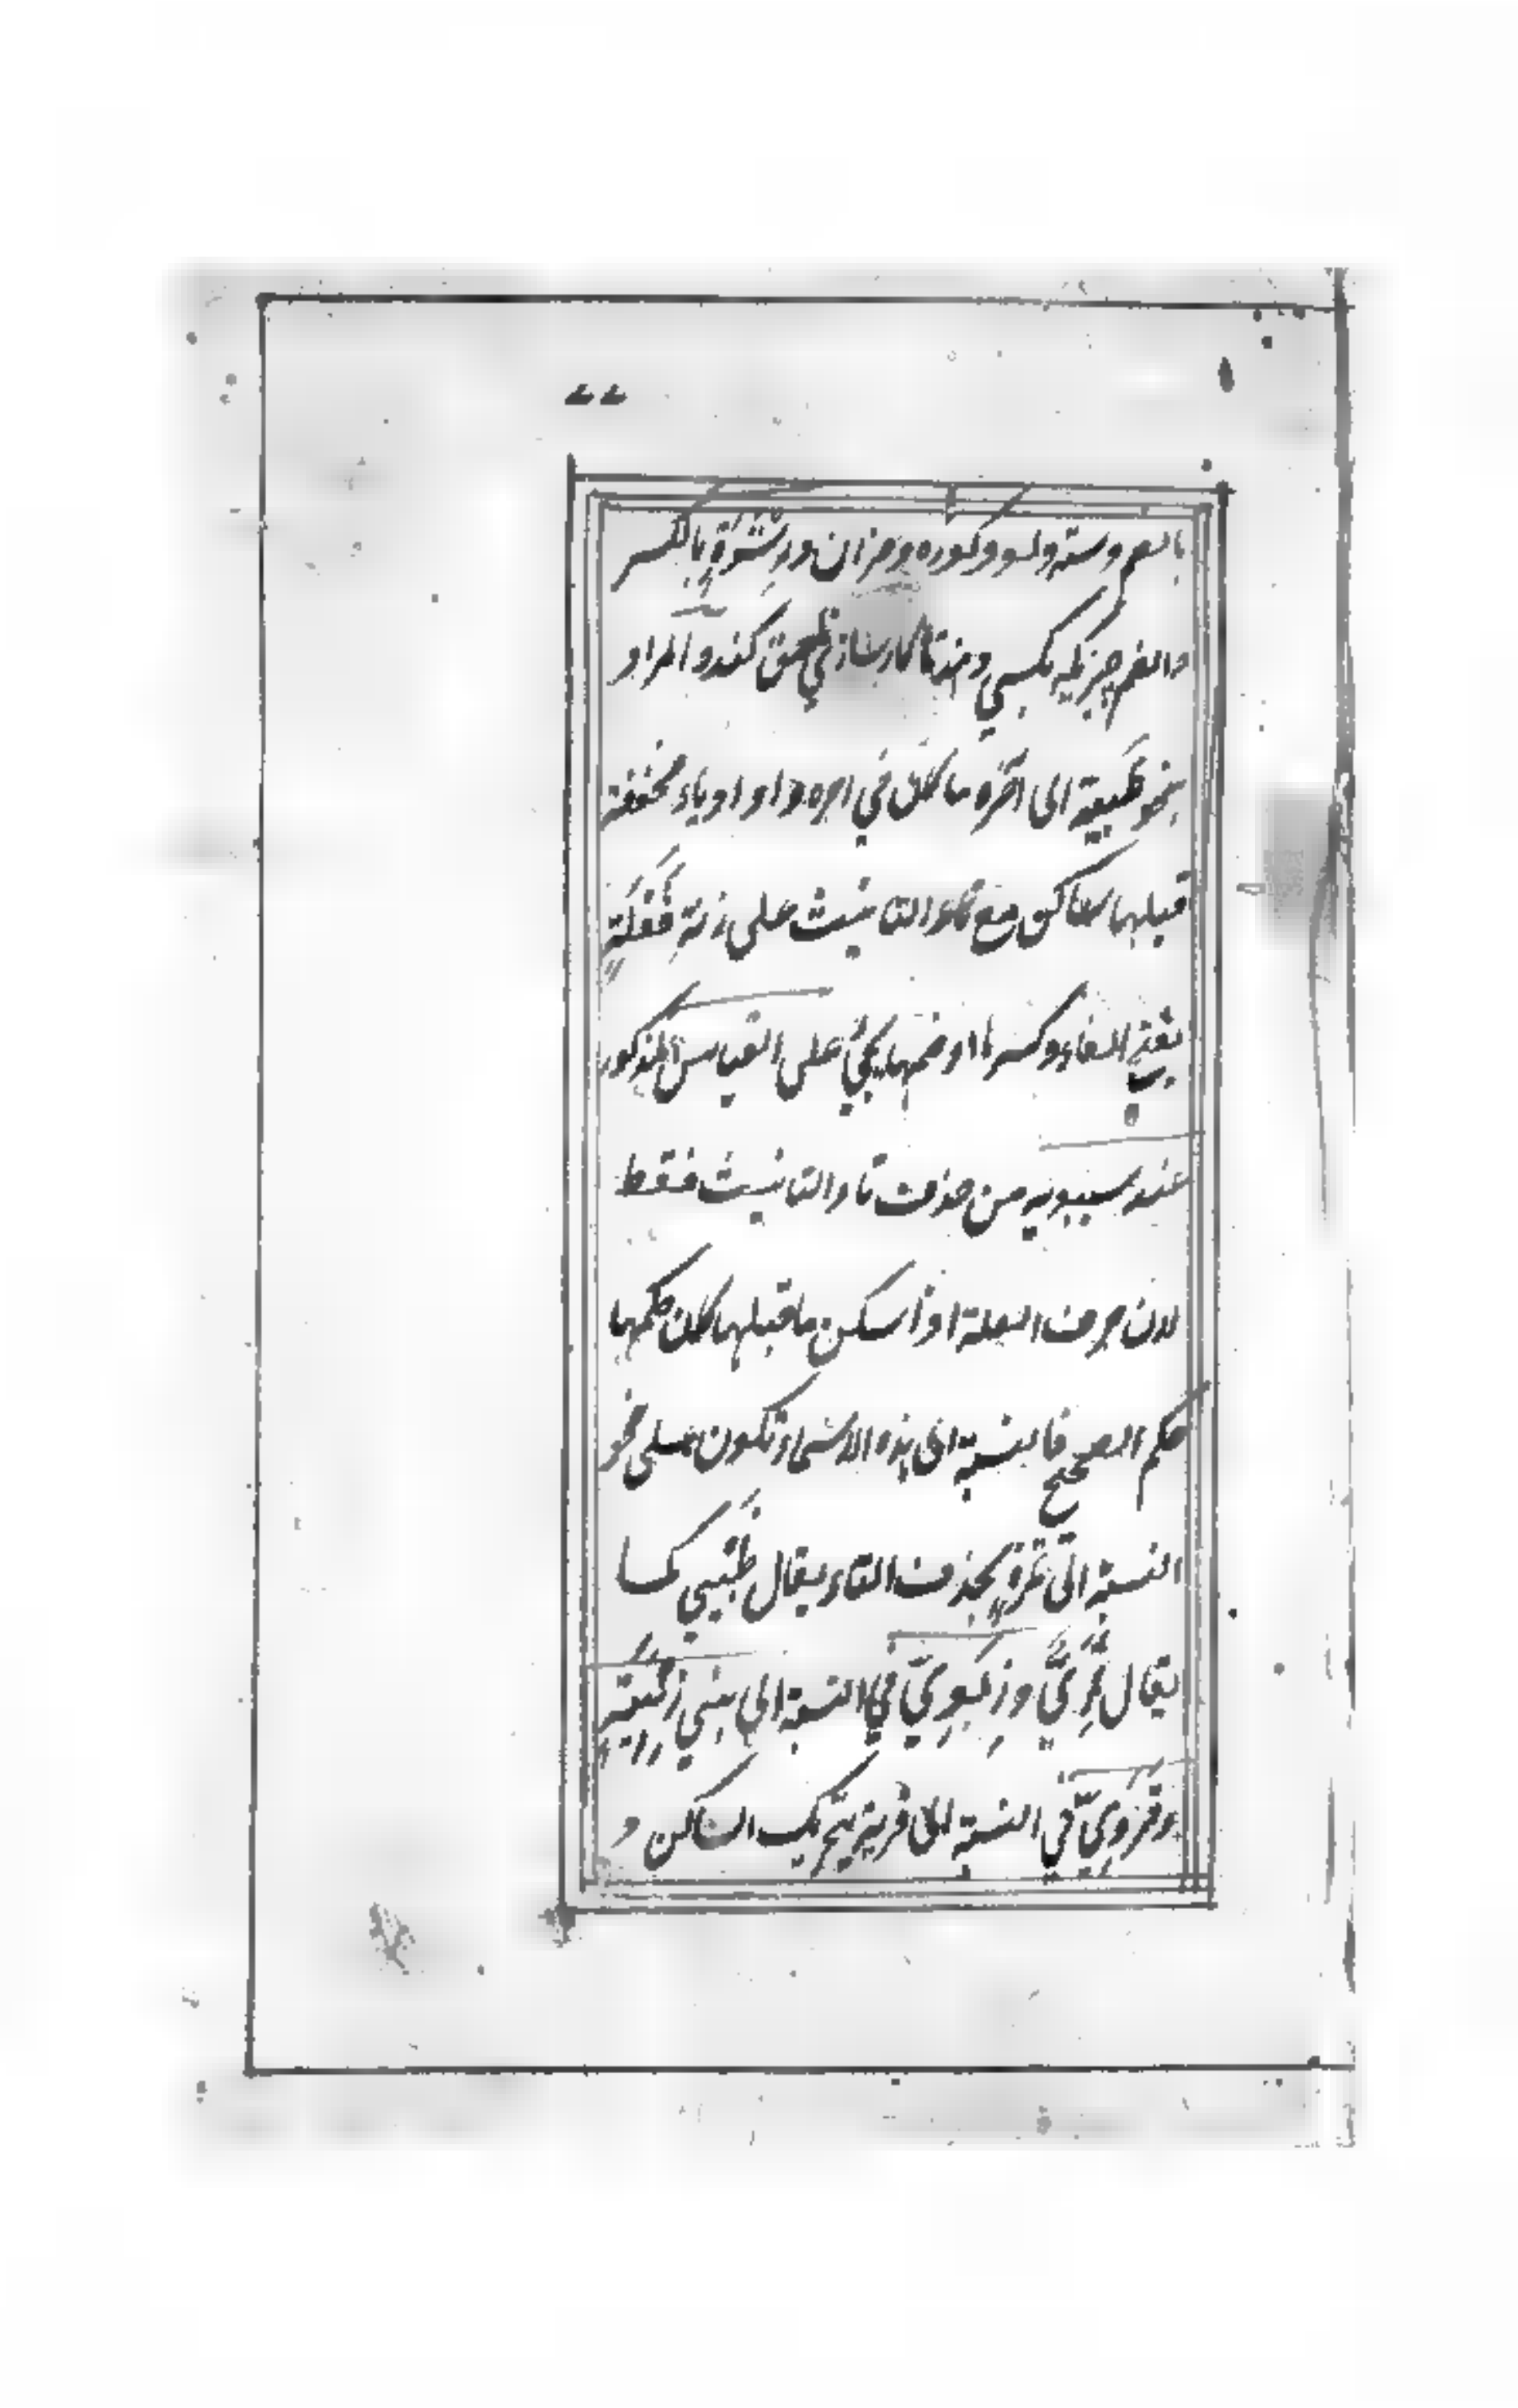 بالضم وسته ولو وكوزه وميزان ورِشْوَةٍ بالكسر
والضم چيزيكه بكسي دهند تا كارسازي بحق كند والمراد
بنحو ظَبية الى آخره ما كان في اخره واو او ياء مخففة
قبلها ساكن مع تاء التانيث على زنةِ فَعْلَةٍ
بفتح الفاء وكسرها او ضمها يجيُ على القياس المذكور
عند سيبويه من حذف تاء التانيث فقط
لان حرف العلة اذا سكن ما قبلها كان حكمها
حكم الصحيح فالنسبة الى هذه الاسماء تكون على نحو
النسبة الى تمرةٍ بحذف التاء يقال ظَبْيي كما
يقال تَمْرِيٌّ وزِنَوِيّ في النسبة الى بني زِنْيَةٍ
وقَرَوِيّ في النسبة الى قرية بتحريك الساكن و